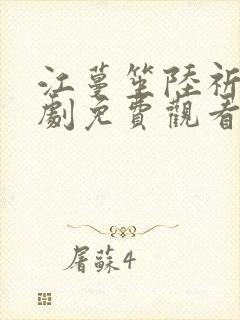 江蔓笙陸祈
劇免費觀看
屠蘇4